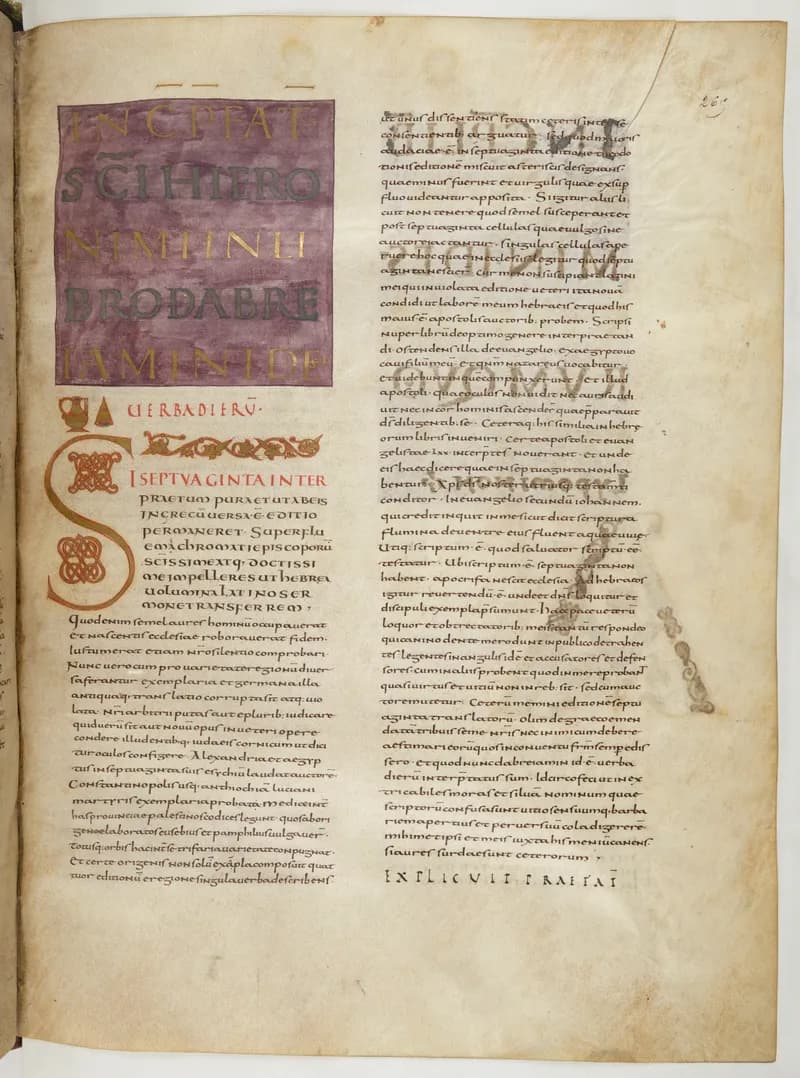 INC PFAT
SCI HIERO
NIMI IN LI
BRO DABRE
IAMIN ID E
UERBA DIERŪ
SI SEPTVAGINTA INTER
PRAETUM PURA ET UT AB EIS
IN GRECŪ UERSA Ē EDITIO
PERMANERET. SUPERFLU
E MĪ CHROMATI EPISCOPORŪ
SCISSIME ATQ. DOCTISSI
ME IMPELLERES UT HEBREA
UOLUMINA LATINO SER
MONE TRANSFERREM
Quod enim semel aures hominū occupauerat
et nascentis ecclesiae roborauerat fidem.
iustum erat etiam nr̄o silentio comprobari.
Nunc uero cum pro uarietate regionū diuer
sa ferantur exemplaria et germana illa
antiquaq. translatio corrupta sit atq. uio
lata. Nr̄i arbitrii putas aut e plurib; iudicare
quid uerū sit aut nouū opus in ueteri opere
condere illudentibq. iudaeis cornicum ut dici
tur oculos configere. Alexandria et aegyp
tus in septuaginta suis esychiū laudat auctorē.
Constantinopolis usq. anthiochiā luciani
martyris exemplaria probat. Mediae int̄
has prouinciae palestinos codices legunt. quos ab ori
gene elaboratos eusebius et pamphilus uulgauer̄.
Totusq. orbis hac int̄ se trifaria uarietate conpugnat.
Et certe origenis non solū exāpla composuit quat
tuor editionū e regione singula uerba describens
265
ut unus dissentiens statim ceteris inter se
consentientib; arguatur. Sed quod maioris
audaciae ē. in septuaginta editione theodo
tionis editionē miscuit asteriscis designans
quae minus fuerint et uirgulis quae ex sup
fluo uideantur apposita. Si igitur aliis li
cuit non tenere quod semel susceperant et
post septuaginta cellulas quae uulgo sine
auctore iactantur. singulas cellulas ape
ruere hoc quae in ecclesiis legitur quod septu
aginta nescier̄. cur me non suscipiant latini
mei qui inuiolata editione ueteri ita nouā
condidi ut labore meum hebraeis et quod his
maius ē apostolis auctorib; probem. Scripsi
nuper librū de optimo genere interpraetan
di. ostendens illa de euangelio. ex aegypto uo
caui filiū meū. et qnm̄ nazareus uocabitur.
et uidebunt in quē compunxerunt. et illud
apostoli. quae oculus non uidit nec auris audi
uit nec in cor hominis ascender̄ quae pparauit
ds̄ diligentib. se. Ceteraq. his similia in hebre
orum libris inueniri. Certe apostoli et euan
gelistae lxx interptes nouerant. et unde
eis haec dicere quae in septuaginta non ha
bentur. Xps̄ ds̄ noster utriusq. testamti
conditor. In euangelio secundū iohannem.
qui credit inquit in me sicut dicit scriptura
flumina de uentre eius fluent aquae uiuae.
Utiq; scriptum ē. quod saluator scriptū eē
testatur. Ubi scriptum ē. septuaginta non
habent. apocrifa nescit ecclesia. Ad hebraeos
igitur reuertendū ē. unde et dns̄ loquitur et
discipuli exempla psumunt. Haec pace ueterū
loquor et obtrectatorib; meis tantū respondeo
qui canino dente me rodunt in publico detrahen
tes legentes in angulis idē et accusatores et defen
sores. cum in aliis probent quod in me reprobant
quasi uirtus et uitiū non in reb; sit. sed cum auc
tore mutetur. Ceterū memini editionē septu
aginta translatorū. olim de graeco emen
datā tribuisse me nr̄is nec inimicum debere
aestimari eorū quos in conuentu fr̄m semp edis
sero. et quod nunc dabreiamin id ē uerba
dierū interptatus sum. Idcirco feci ut inex
tricabiles moras et siluā nominum quae
scriptorū confusa sunt uitio sensuumq. barba
riem apertius et per uersuū cola digererē.
mihimet ipsi et meis iuxta hismeniū canens
si aures surdae sunt ceterorum
EXPLICVIT PRAEFAT